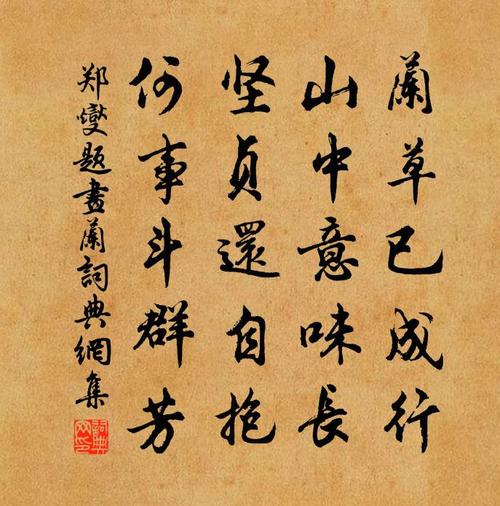 蘭草已成行
山中意味長
坚貞還自抱
何事斗群芳
郑燮題畫蘭詞典網集